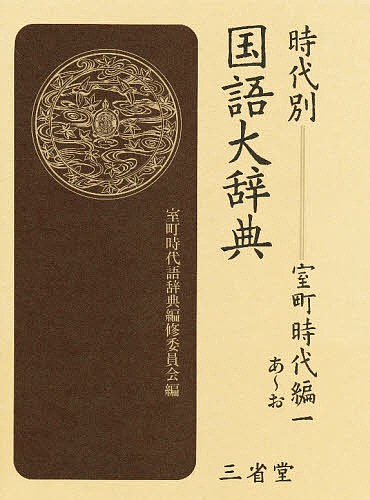 時代別
室町時代編一
あ〜お
国語大辞典
室町時代語辞典編修委員会編
三省堂